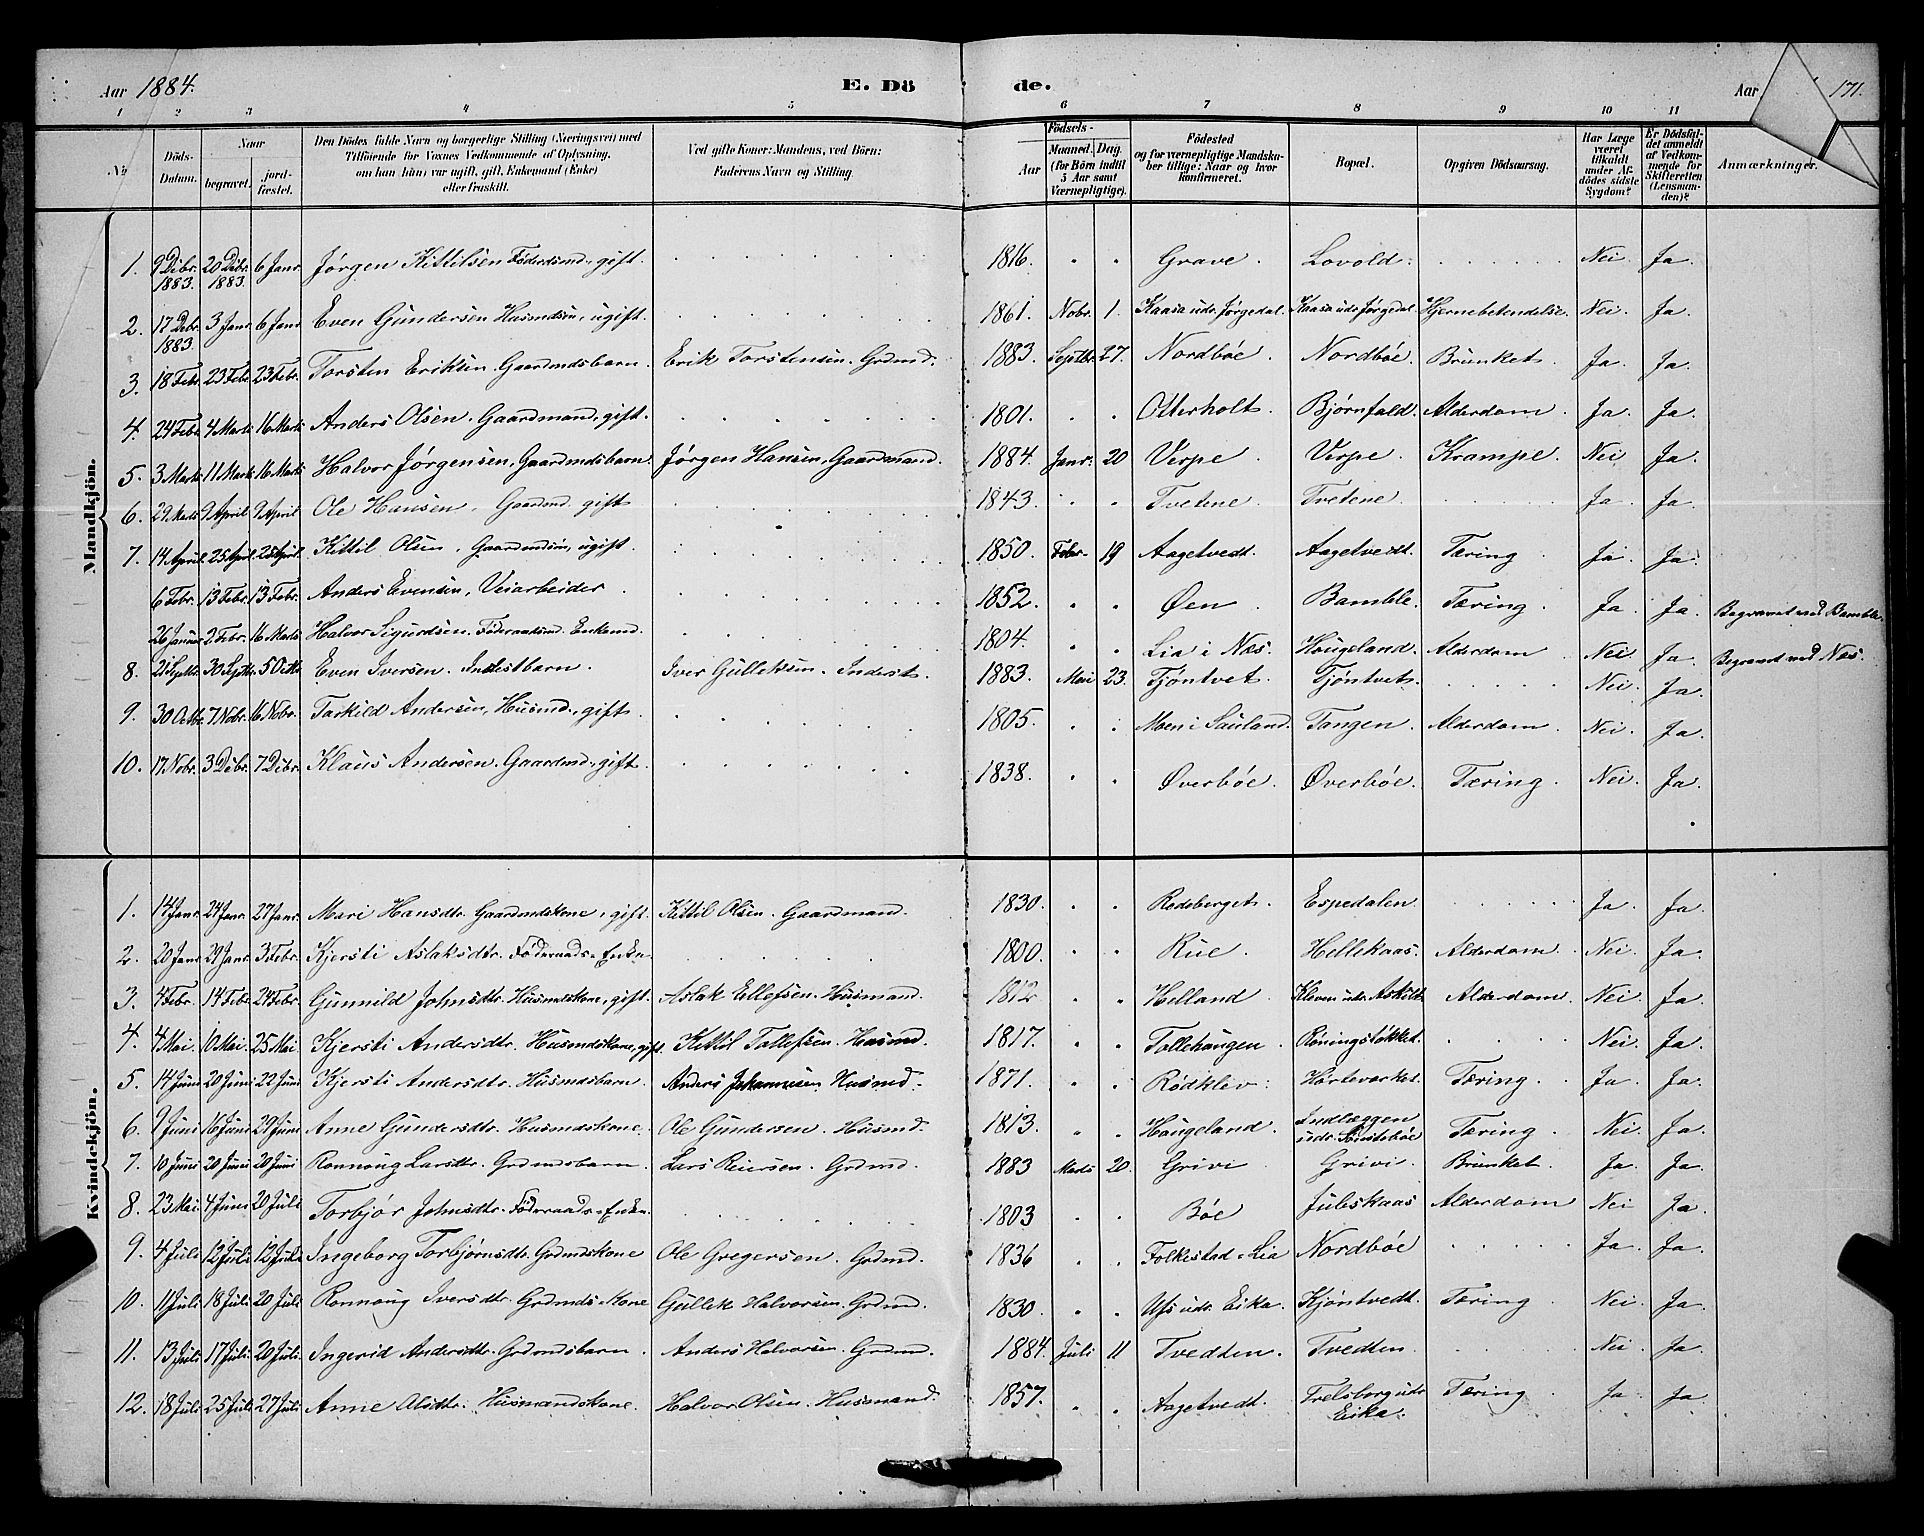 Aar 1884. E. Dö de. Aar 171.
1 2 3 4 5 6 7 8 9 10 11
№ Döds-Datum. Naar begravet. jordfæstet. Den Dödes fulde Navn og borgerlige Stilling (Næringsvei) med Tilföiende for Voxnes Vedkommende af Oplysning, om han (hun) var ugift, gift, Enkemand (Enke) eller fraskilt. Ved gifte Koner: Mandens, ved Börn: Faderens Navn og Stilling. Födsels- Aar Maaned. Dag. (for Börn indtil 5 Aar samt Værnepligtige). Födested og for værnepligtige Mandskaber tillige: Naar og hvor konfirmeret. Bopæl. Opgiven Dödsaarsag. Har Læge været tilkaldt under Afdödes sidste Sygdom? Er Dödsfaldet anmeldt af Vedkommende for Skifteretten (Lensmanden)? Anmærkninger.
Mandkjön.
1. 9 Debr. 1883. 20 Debr. 1883. 6 Janr. Jørgen Kittilsen Föderdsmd., gift. 1816. Grave. Lovold. Nei Ja.
2. 17 Debr. 1883. 3 Janr. 6 Janr. Even Gundersen Husmdsøn, ugift. 1861. Nobr. 1. Kaasa udr. Jørgedal. Kaasa udr. Jørgedal. Hjernebetendelse. Nei. Ja.
3. 18 Febr. 23 Febr. 23 Febr. Torsten Eriksen. Gaardmdsbarn. Erik Torstensen. Grdmd. 1883. Septbr. 27. Nordbøe. Nordbøe. Brunket. Ja. Ja.
4. 24 Febr. 4 Marts 16 Marts Anders Olsen, Gaardmand, gift. 1801. Otterholt. Bjørnfald. Alderdom. Ja. Ja.
5. 3 Marts 11 Marts 16 Marts Halvor Jørgensen, Gaardmdsbarn. Jørgen Hansen, Gaardmand. 1884. Janr. 20 Verpe. Verpe. Krampe. Nei Ja.
6. 29 Marts 9 April 9 April Ole Hansen, Gaardmd. gift 1843. Tvetene. Tvetene. Ja. Ja.
7. 14 April. 25 April. 25 April. Kittil Olsen, Gaardmdsøn, ugift. 1850. Febr. 19 Aagetvedt. Aagetvedt. Tæring. Ja. Ja.
6 Febr. 13 Febr. 13 Febr. Anders Evensen, Veiarbeider. 1852. Øen. Bamble. Tæring. Ja. Ja. Begravet ved Bamble.
26 Januar 2 Febr. 16 Marts Halvor Sigurdsen. Föderaadsmd. Enkemd. 1804. Lia i Næs. Haugeland. Alderdom Nei. Ja. Begravet ved Næs.
8. 21 Septbr. 30 Septbr. 5 Octbr. Even Iversen. Inderstbarn. Iver Gulleksen. Inderst. 1883. Mai 23. Tjøntvet. Tjøntvet. Nei. Ja.
9. 30 Octbr. 7 Nobr. 16 Nobr. Tarkild Andersen, Husmd., gift. 1805. Moen i Sauland. Tangen. Alderdom. Nei. Ja.
10. 17 Nobr. 3 Debr. 7 Debr. Klaus Andersen. Gaardmd., gift. 1838. Øverbøe. Øverbøe. Tæring. Nei. Ja.
Kvindekjön.
1. 14 Janr. 24 Janr. 27 Janr. Mari Hansdtr. Gaardmdskone, gift. Kittil Olsen. Gaardmand. 1830. Rødsberget. Espedalen. Ja. Ja.
2. 20 Janr. 29 Janr. 3 Febr. Kjersti Aslaksdtr. Föderaads-Enke. 1800. Rue. Hellekaas. Alderdom. Nei. Ja.
3. 4 Febr. 14 Febr. 24 Febr. Gunnild Johnsdtr. Husmdskone, gift. Aslak Ellefsen. Husmand. 1812 Helland. Kleven udr. Askildt. Alderdom. Nei. Ja.
4. 4 Mai. 10 Mai. 25 Mai Kjersti Andersdtr. Husmdskone, gift. Kittil Tollefsen. Husmd. 1817. Tollehaugen. Røningstokket. Nei. Ja.
5. 14 Juni 20 Juni 22 Juni Kjersti Andersdtr. Husmdsbarn. Anders Johannesen Husmd. 1871. Rødklev. Hørteværket. Tæring. Ja. Ja.
6. 9 Juni 16 Juni 29 Juni Anne Gundersdtr. Husmdskone. Ole Gundersen. Husmd. 1813. Haugeland. Indlæggen udr. Tæring. Nei. Ja.
7. 10 Juni 20 Juni 20 Juni Ronnoug Larsdtr. Grdmdsbarn. Lars Reiersen. Grdmd. 1883 Marts 20. Grivi Grivi. Brunket. Ja. Ja.
8. 23 Mai. 4 Juni 20 Juli Torbjør Johnsdtr. Föderaads-Enke. 1803 Bøe Juleskaas Alderdom Nei Ja.
9. 4 Juli 12 Juli 12 Juli. Ingeborg Torbjørnsdtr. Grdmdskone Ole Gregersen. Grdmd. 1836 Folkestad-Lia Nordbøe Ja. Ja.
10. 11 Juli 18 Juli 20 Juli Ronnoug Iversdtr. Grdmds-Kone Gullek Halvorsen. Grdmd. 1830. Ufs udr. Eika. Kjøntvedt. Tæring Nei. Ja.
11. 13 Juli 17 Juli. 20 Juli. Ingerid Andersdtr. Grdmdsbarn. Anders Halvorsen. Grdmd. 1884. Juli 11 Tvedten. Tvedten. Nei. Ja.
12. 18 Juli 25 Juli 27 Juli Anne Olsdtr. Husmandskone. Halvor Olsen. Husmand 1857. Aagetvedt. Trelsborg udr. Eika. Tæring Ja. Ja.